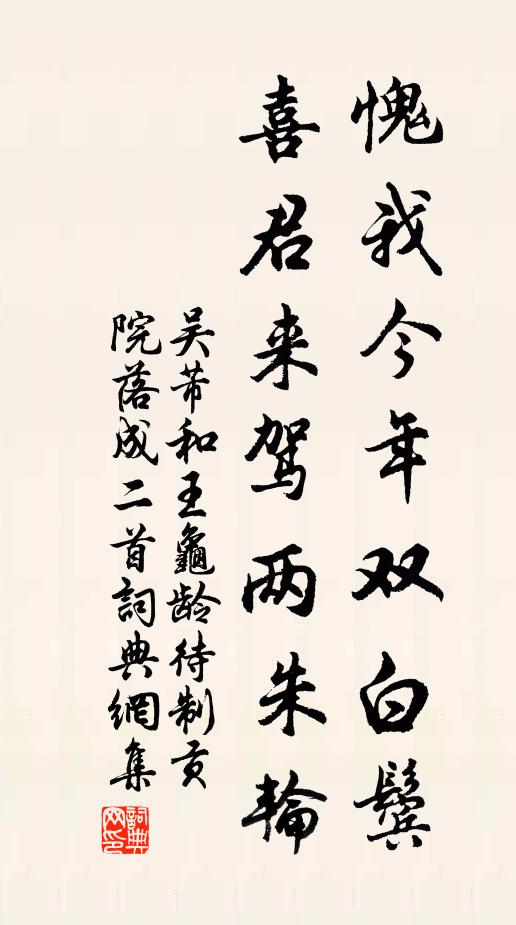 愧我今年双白鬓
喜君来驾两朱輪
吴芾和王龜龄待制贡
院落成二首詞典網集
詞典
网印